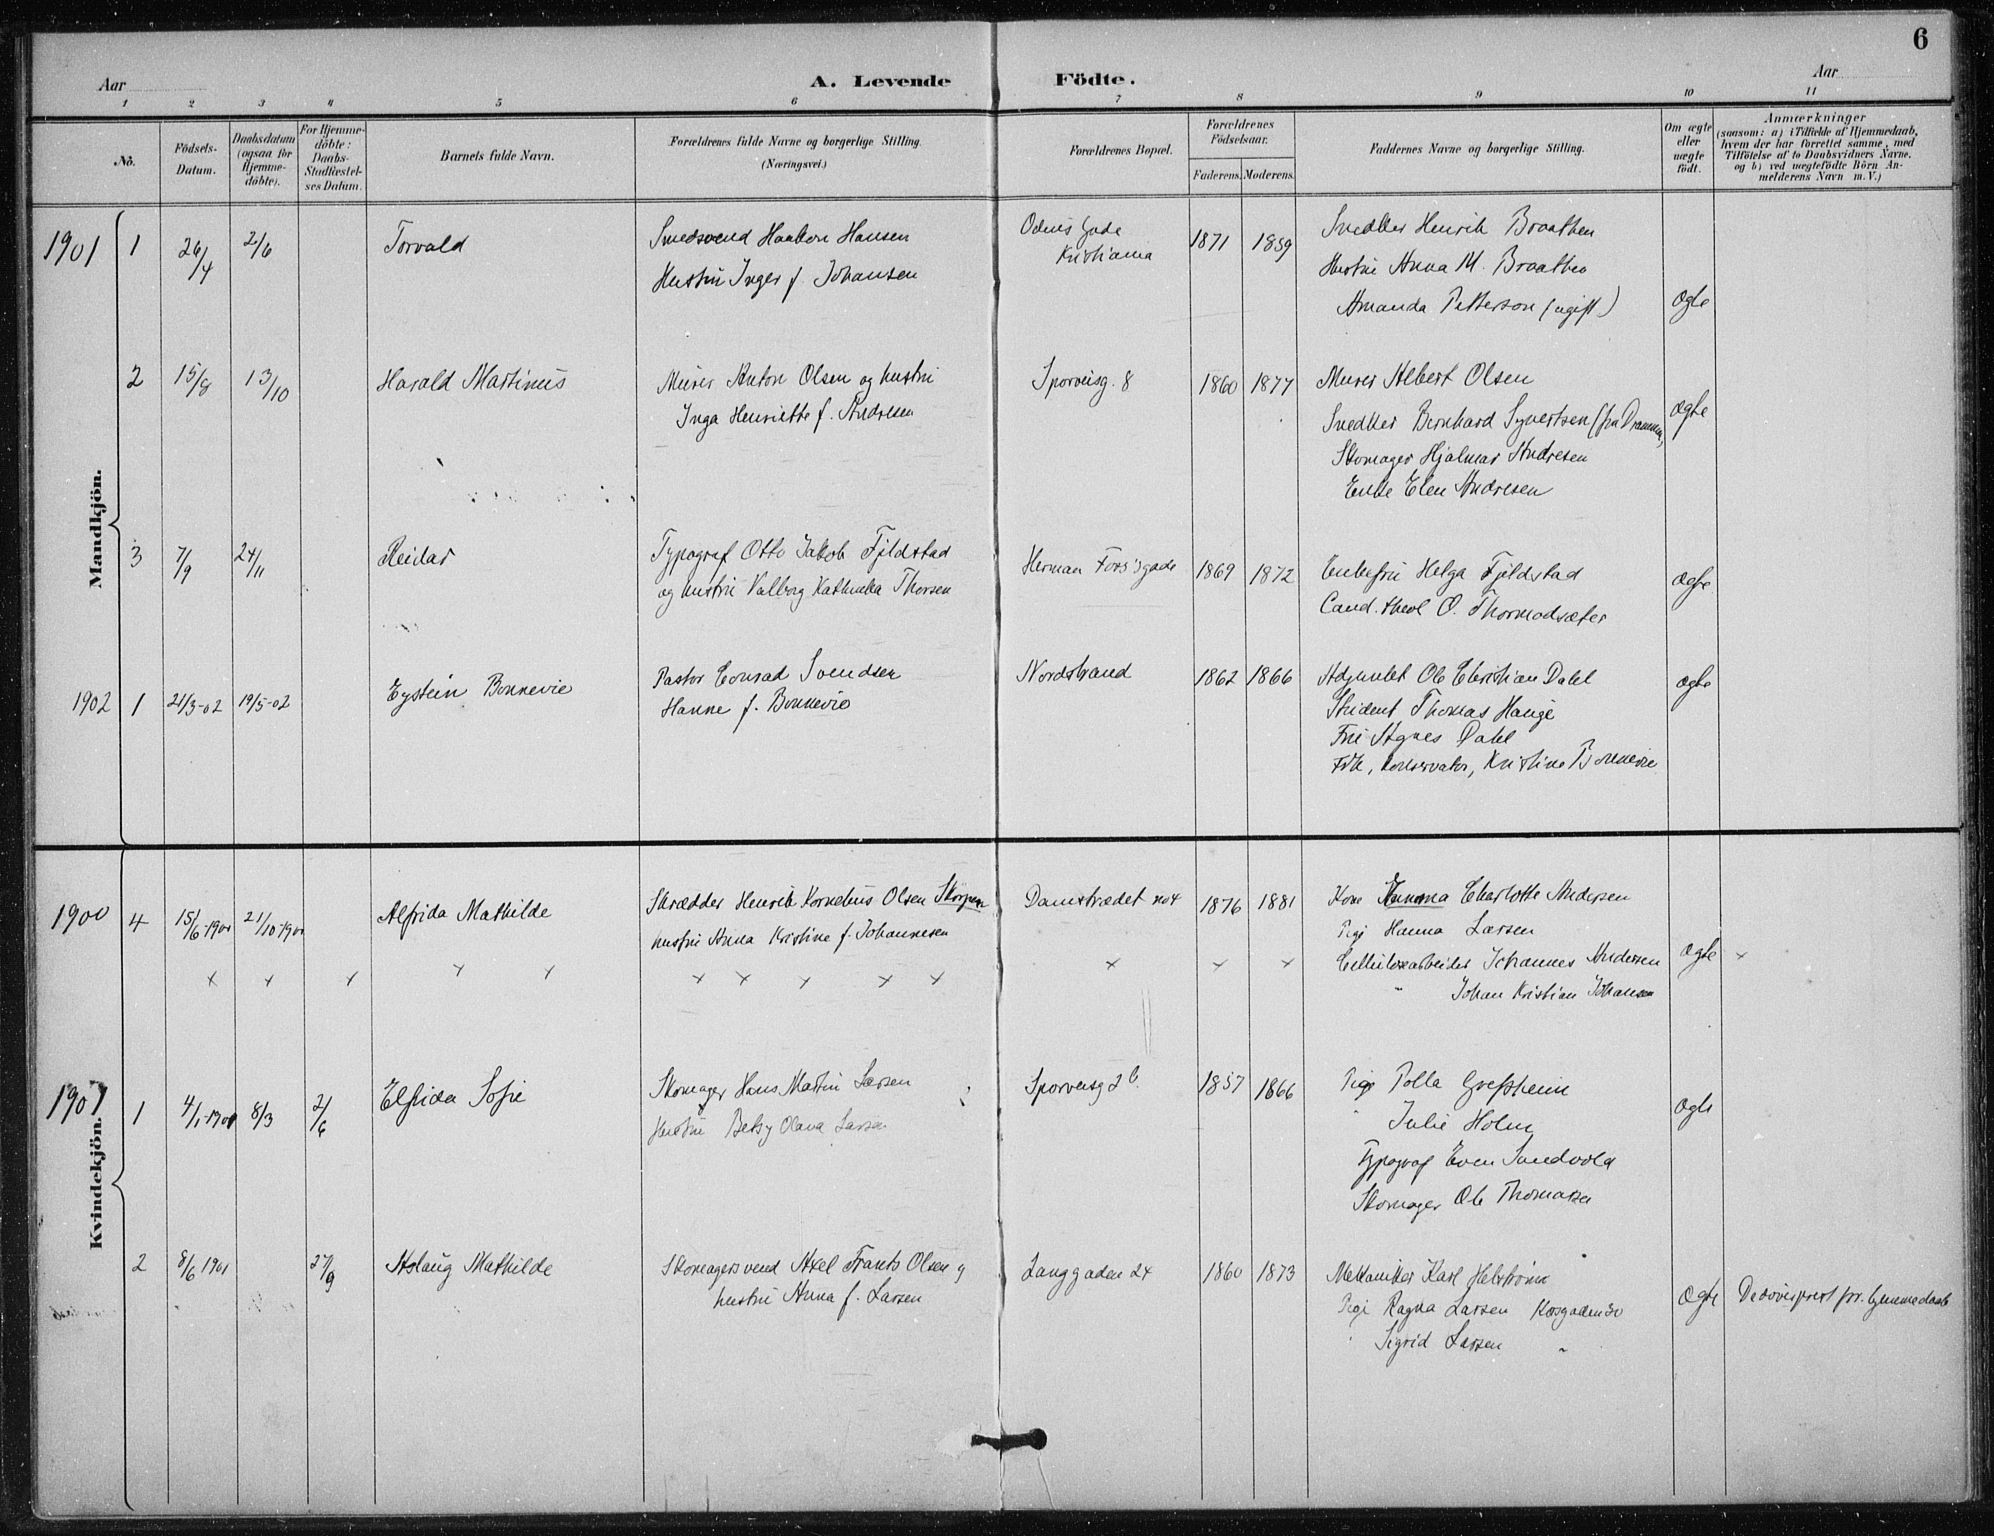 6
Aar
A. Levende
Födte.
Aar
1 2 3 4 5 6 7 8 9 10 11
No.
Födsels-
Datum.
Daabsdatum
(ogsaa for
Hjemme-
döbte).
For Hjemme-
döbte:
Daabs-
Stadfæstel-
ses Datum.
Barnets fulde Navn.
Forældrenes fulde Navne og borgerlige Stilling.
(Næringsvei.)
Forældrenes Bopæl.
Forældrenes
Födselsaar.
Faderens. Moderens.
Faddernes Navne og borgerlige Stilling.
Om ægte
eller
uægte
födt.
Anmærkninger
(saasom: a) i Tilfælde af Hjemmedaab,
hvem der har forrettet samme, med
Tilföielse af to Daabsvidners Navne.
og b) ved uægtefödte Börn An-
melderens Navn m. V.)
Mandkjön.
1901 1 26/4 2/6 Torvald
Smedsvend Haakon Hansen
Hustru Inger f. Johansen
Odins Gade
Kristiania
1871 1859
Snedker Henrik Braathen
Hustru Anna M. Braathen
Amanda Petterson (ugift)
Ægte
2 15/8 13/10 Harald Martinus
Murer Anton Olsen og hustru
Inga Henriette f. Andresen
Sporveisg. 8
1860 1877
Murer Albert Olsen
Snedker Bernhard Syvertsen (fra Drammen,
Skomager Hjalmar Andresen
Enke Elen Andresen
Ægte
3 7/9 24/11 Reidar
Typograf Otto Jakob Fjeldstad
og hustru Valborg Kathinka Thorsen
Herman Foss's gade
1869 1872
Enkefru Helga Fjeldstad
Cand. theol O. Thormodsæter
Ægte
1902 1 21/3-02 19/5-02 Eystein Bonnevie
Pastor Conrad Svendsen
Hanne f. Bonnevie
Nordstrand
1862 1866
Adjunkt Ole Christian Dahl
Student Thomas Hauge
Fru Agnes Dahl
Frk, Konservator, Kristine Bonnevie
Ægte
Kvindekjön.
1900 4 15/6-1900 21/10-1900 Alfrida Mathilde
Skrædder Henrik Kornelius Olsen Skorpen
hustru Anna Kristine f. Johannesen
Damstrædet no 4
1876 1881
Kone Emma Charlotte Andersen
Pige Hanna Larsen
Cellulosearbeider Johannes Andersen
" Johan Kristian Johansen
Ægte
1901 1 4/1-1901 8/3 2/6 Elfrida Sofie
Skomager Hans Martin Larsen
Hustru Betsy Olava Larsen
Sporveisg 2 b.
1857 1866
Pige Polla Grefsheim
" Julie Holm
Typograf Even Sandvold
Skomager Ole Thomasen
Ægte
2 8/6 1901 27/9 Aslaug Mathilde
Skomagersvend Axel Frants Olsen og
hustru Anna f. Larsen
Langgaden 24
1860 1873
Mekaniker Karl Helstrøm
Pige Ragna Larsen Korsgaden 30
" Sigrid Larsen "
Ægte
Dedøvesprest for. hjemmedaab